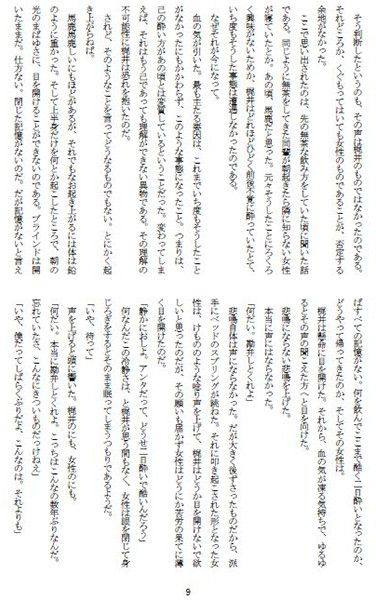 そう判断したというのも、その声は梶井のものではなかったのである。
それどころか、くぐもってはいても女性のものであることが、否定する
余地がなかった。
ここで思い出されたのは、先の無茶な飲み方をしていた頃に聞いた話
である。同じように無茶をしてきた同輩が朝起きたら隣に知らない女性
が寝ていたとか。あの頃、馬鹿だと思った。元々そうしたことにろくろ
く興味がないためか、梶井はどれほどひどく前後不覚に酔っていたとて、
いち度もそうした事態は遭遇しなかったのである。
なぜそれが今になって。
血の気が引いた。最も主たる要因は、これまでいち度もそうしたこと
がなかったにもかかわらず、このような事態になったこと。つまりは、
己の酔い方があの頃とは変質しているということだった。変わってしま
えば、それはもう己であっても理解ができない異物である。その理解の
不可能性に梶井は恐れを抱いたのだ。
されど、そのようなことを言ってどうなるものでもない。とにかく起
き上がらねば。
馬鹿馬鹿しいにもほどがあるが、それでもなお起き上がるには体は鉛
のように重かった。そして上半身だけを何とか起こしたところで、朝の
光のまばゆさに、目を開けることができないのである。ブラインドは開
いたままだ。仕方ない。閉じた記憶がないのだ。だが記憶がないと言え
ばすべての記憶がない。何を飲んでここまで酷く二日酔いとなったのか、
どうやって帰ってきたのか、そしてその女性は。
梶井は懸命に目を開けた。それから、血の気が凍る気持ちで、ゆるゆ
るとその声の聞こえた方へと目を向けた。
悲鳴にならない悲鳴を上げた。
本当に声にはならなかった。
「何だい、勘弁しとくれよ」
悲鳴自体は声にならなかった。だが大きく後ずさったものだから、派
手にベッドのスプリングが跳ねた。それに叩き起こされた形となった女
性は、けもののような唸り声を上げて、梶井はどうか目を開けないで欲
しいと思ったのだが、その願いも届かず女性はどうにか苦労の果てに薄
く目を開けたのだ。
「静かにおしよ。アンタだって、どうせ二日酔いで酷いんだろう」
何なんだこの冷静さは、と梶井が思う間もなく、女性は眼を閉じて身
じろぎをするとそのまま眠ってしまうつもりであるようだ。
「いや、待って」
声を上げると頭に響いた。梶井のにも、女性のにも。
「何だい。本当に勘弁しとくれよ。こっちはこんなの数年ぶりなんだ。
忘れていたさ、こんなにきついものだっけねえ」
「いや、僕だってしばらくぶりだよ、こんなのは。それよりも」
9